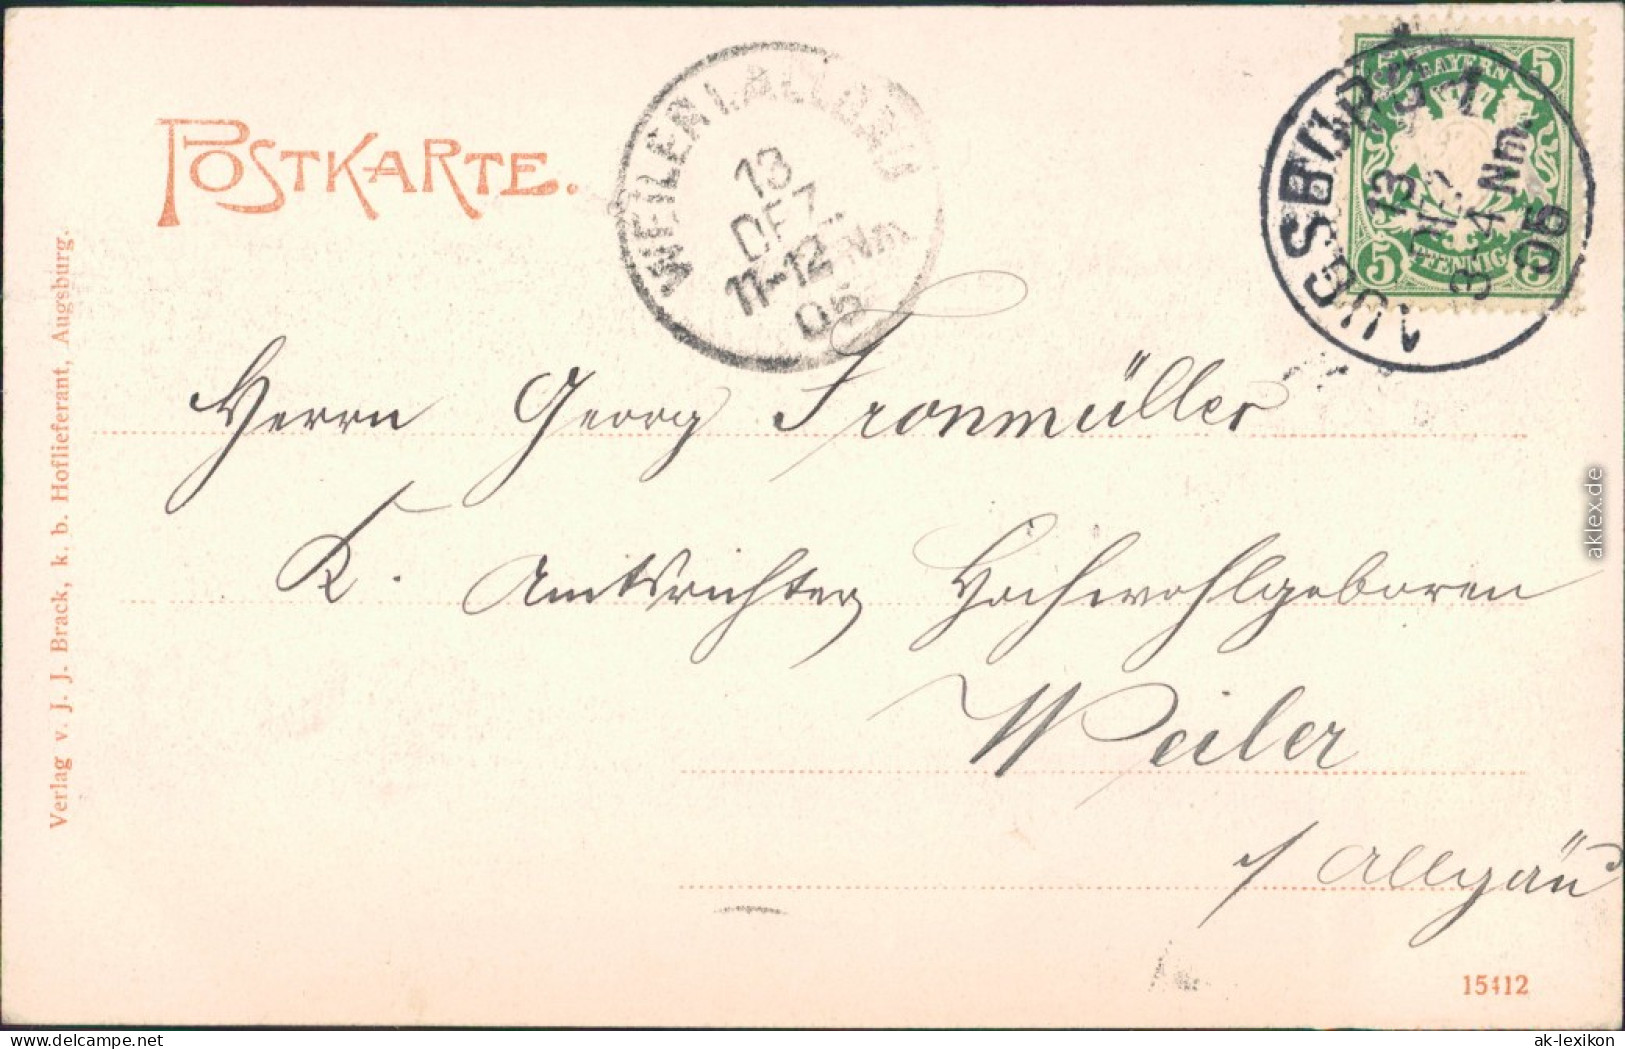 POSTKARTE.
WEILER I. ALLGÄU
13
DEZ.
11-12 Nm
05
BAYERN
5 5
5 PFENNIG 5
AUGSBURG 1
13
DEZ
3-4 Nm.
05
Herrn Georg Fronmüller
K. Amtsrichter Hochwohlgeboren
Weiler
i/ Allgäu
Verlag v. J. J. Brack, k. b. Hoflieferant, Augsburg.
15412
aklex.de
delcampe.net
ak-lexikon